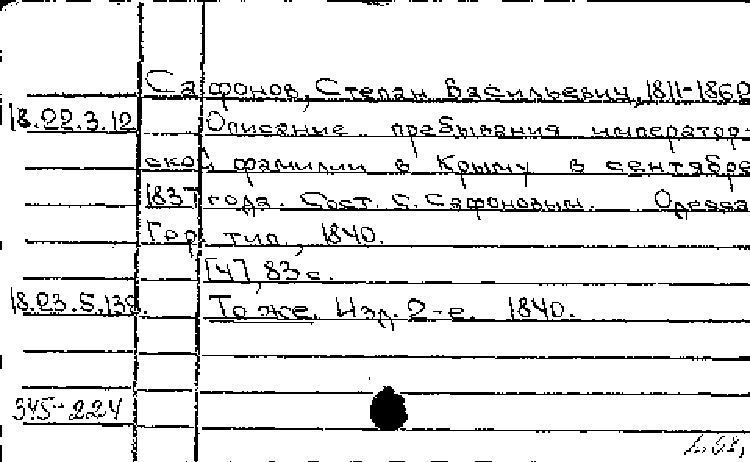 Сафонов, Степан Васильевич, 1811-1862
18.22.3.12 Описание пребывания император-
ской фамилии в Крыму в сентябре
1837 года. Сост. С. Сафоновым. Одесса
Гор. тип., 1840.
[4], 83 с.
18.23.5.132. То же. Изд. 2-е. 1840.
345-224